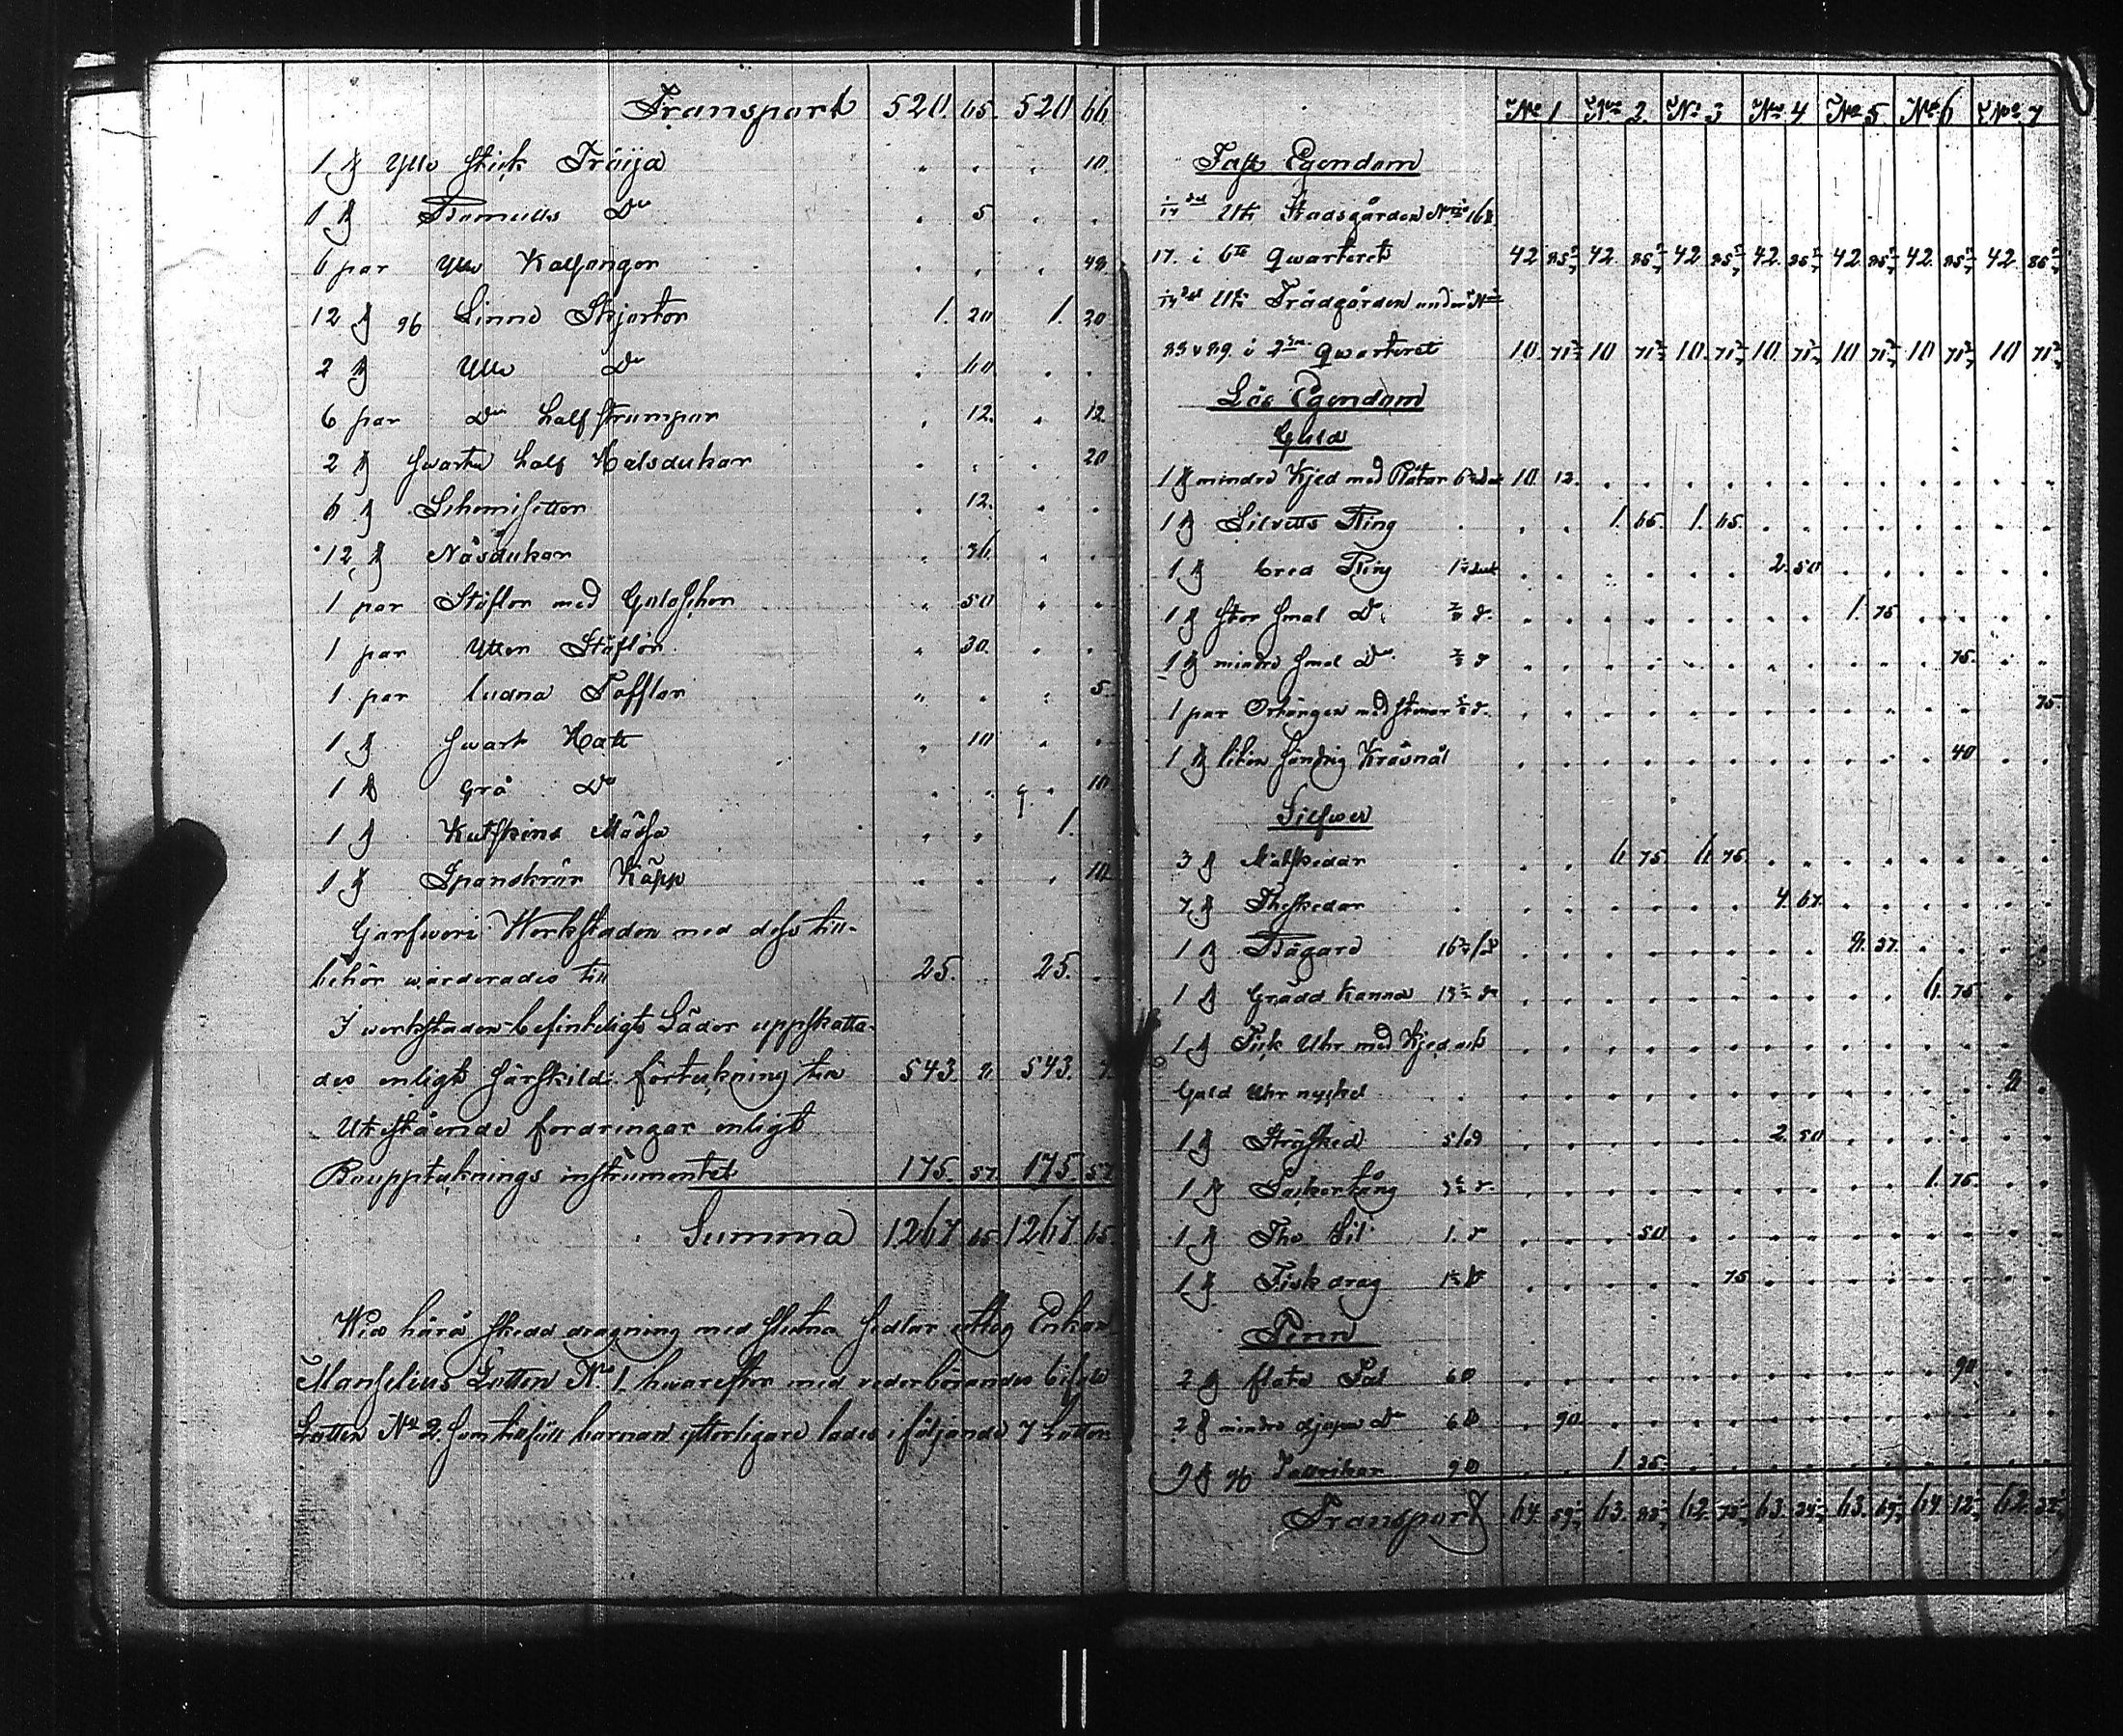 Transport 520. 65. 520 66.
1 st Ylle stick Tröija . . . 10.
1 st Bomulls Do . 5 . .
6 par Ylle Kalsongor . . . 48.
12 st 96 Linne Skjortor 1. 20 1. 20
2 st Ylle Do . 60. . .
6 par Do half strumpor . 12. . 12.
2 st swarta half Halsdukar . . . 20
6 st Schemisetter . 12. . .
12 st Näsdukar . 36. . .
1 par Stöflor med Galoschor . 50 . .
1 par Ytter Stöflor . 30. . .
1 par ludna Tofflor . . . 5.
1 st swart Hatt . 10 . .
1 st Grå Do . . . 10
1 st Kutskins Mössa . . 1.
1 st Spanskrör Käpp . . . 10
Garfweri Werkstaden med dess till-
behör wärderades till 25. . 25. .
I werkstaden befinteligt Läder uppskatta-
des enligt särskild förtekning till 543. 9. 543. 9.
Utestående fordringar enligt
Bouppteknings instrumentet 175. 57. 175. 57
Summa 1267. 65. 1267. 65.
Wid härå skedd dragning med slutna sedlar uttog Enkan
Manselius Lotten No 1. hwarefter med wederbörandes bifall
Lotten No 2. som tillföll barnen ytterligare lades i följande 7 Lotter.
No 1 No 2. No 3 No 4 No 5. No 6 No 7
Fast Egendom
1/14 del Uti Stadsgården No 168
17. i 6te Qwarteret 42 85 5/7 42. 85 5/7 42 85 5/7 42. 85 5/7 42. 85 5/7 42. 85 5/7 42. 85 5/7
1/14 del Uti Trädgården under No
88 & 89. i 2dra Qwarteret 10 71 3/7 10 71 3/7 10. 71 3/7 10. 71 3/7 10 71 3/7 10 71 3/7 10 71 3/7
Lös Egendom
Guld
1 st mindre Kjed med Plåtar 10. 12.
1 st Ring 1. 65. 1. 65.
1 st bred Ring 2. 50
1 st stor smal Do 1. 75
1 st mindre smal Do 75.
1 par Örhängen med stenar 75.
1 st liten söndrig Kråsnål 40
Silfwer
3 st Matskedar 6. 75. 6. 75.
7 st Theskedar 4. 67.
1 st Bägare 8. 37.
1 st Grädd Kanna 6. 75
1 st Fick Uhr med Kjed och
Guld Uhr nyckel 8.
1 st Strösked 5 lod 2. 50
1 st Sockertång 1. 75.
1 st The Sil 50
1 st Fiskdrag 75
Tenn
2 st flata Fat 6 90
2 st mindre djupa Do 6 90
9 st 96 Tallrikar 9 1. 35.
Transport 64. 59 1/7 63. 62. 63. 63. 64. 12 1/7 62. 32 1/7